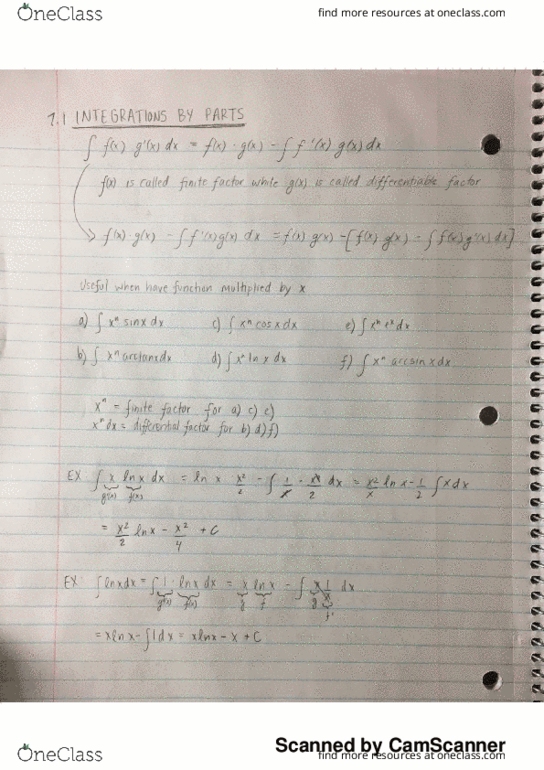 OneClass find more resources at oneclass.com
7.1 INTEGRATIONS BY PARTS
∫ f(x) g'(x) dx = f(x) · g(x) - ∫ f'(x) g(x) dx
f(x) is called finite factor while g(x) is called differentiable factor
f(x) · g(x) - ∫ f'(x) g(x) dx = f(x) g(x) - [f(x) g(x) - ∫ f(x) g'(x) dx]
Useful when have function multiplied by x
a) ∫ xⁿ sinx dx c) ∫ xⁿ cosx dx e) ∫ xⁿ eˣ dx
b) ∫ xⁿ arctanx dx d) ∫ xⁿ ln x dx f) ∫ xⁿ arcsin x dx
xⁿ = finite factor for a) c) e)
xⁿ dx = differential factor for b) d) f)
EX ∫ x ln x dx = ln x x²/2 - ∫ 1/x · x²/2 dx = x²/x ln x - 1/2 ∫ x dx
g'(x) f(x)
= x²/2 ln x - x²/4 + C
EX ∫ lnx dx = ∫ 1 · ln x dx = x ln x - ∫ x 1/x dx
g'(x) f(x) g f g f'
= xlnx - ∫ 1 dx = xlnx - x + C
Scanned by CamScanner
OneClass find more resources at oneclass.com